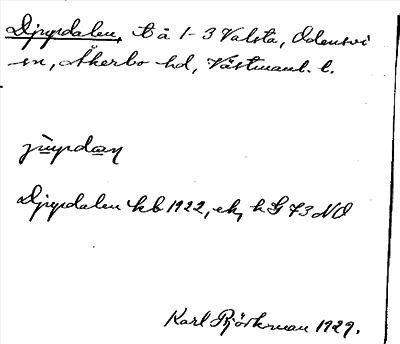 Djupdalen, t å 1-3 Valsta, Odensvi
sn, Åkerbo hd, Västmanl. l.
jùpdan
Djupdalen kb 1922, ek, h G 73 NO
Karl Björkman 1929.